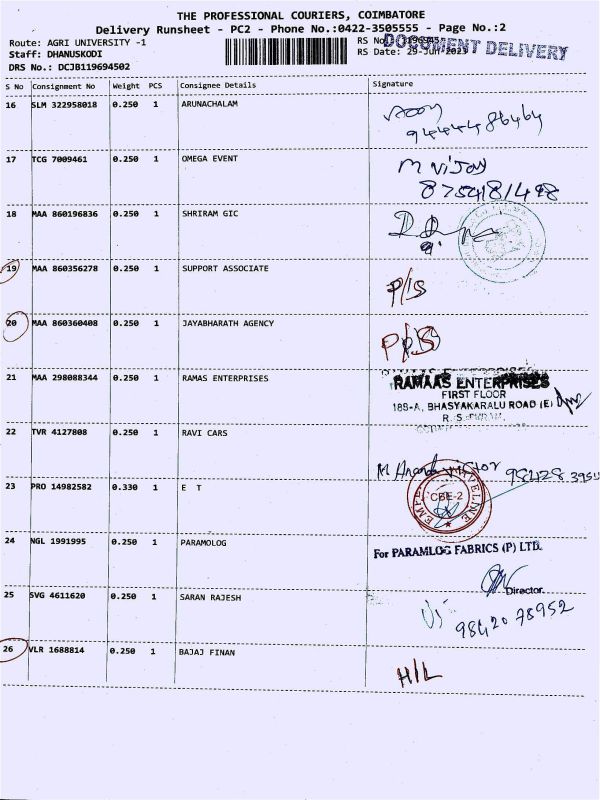 THE PROFESSIONAL COURIERS, COIMBATORE
Delivery Runsheet - PC2 - Phone No.:0422-3505555 - Page No.:2
Route: AGRI UNIVERSITY -1
RS No.:
DOCUMENT DELIVERY
Staff: DHANUSKODI
RS Date: 29-Jun-2023
DRS No.: DCJB119694502
S No Consignment No Weight PCS Consignee Details Signature
16 SLM 322958018 0.250 1 ARUNACHALAM
9444486464
17 TCG 7009461 0.250 1 OMEGA EVENT M Vijay
18 MAA 860196836 0.250 1 SHRIRAM GIC
19 MAA 860356278 0.250 1 SUPPORT ASSOCIATE
P/S
20 MAA 860360408 0.250 1 JAYABHARATH AGENCY
21 MAA 298088344 0.250 1 RAMAS ENTERPRISES RAMAAS ENTERPRISES
FIRST FLOOR
188-A, BHASYAKARALU ROAD (E)
22 TVR 4127808 0.250 1 RAVI CARS
23 PRO 14982582 0.330 1 E T
CBE-2
24 NGL 1991995 0.250 1 PARAMOLOG For PARAMLOG FABRICS (P) LTD.
Director.
25 SVG 4611620 0.250 1 SARAN RAJESH
98420 78952
26 VLR 1688814 0.250 1 BAJAJ FINAN
H/L